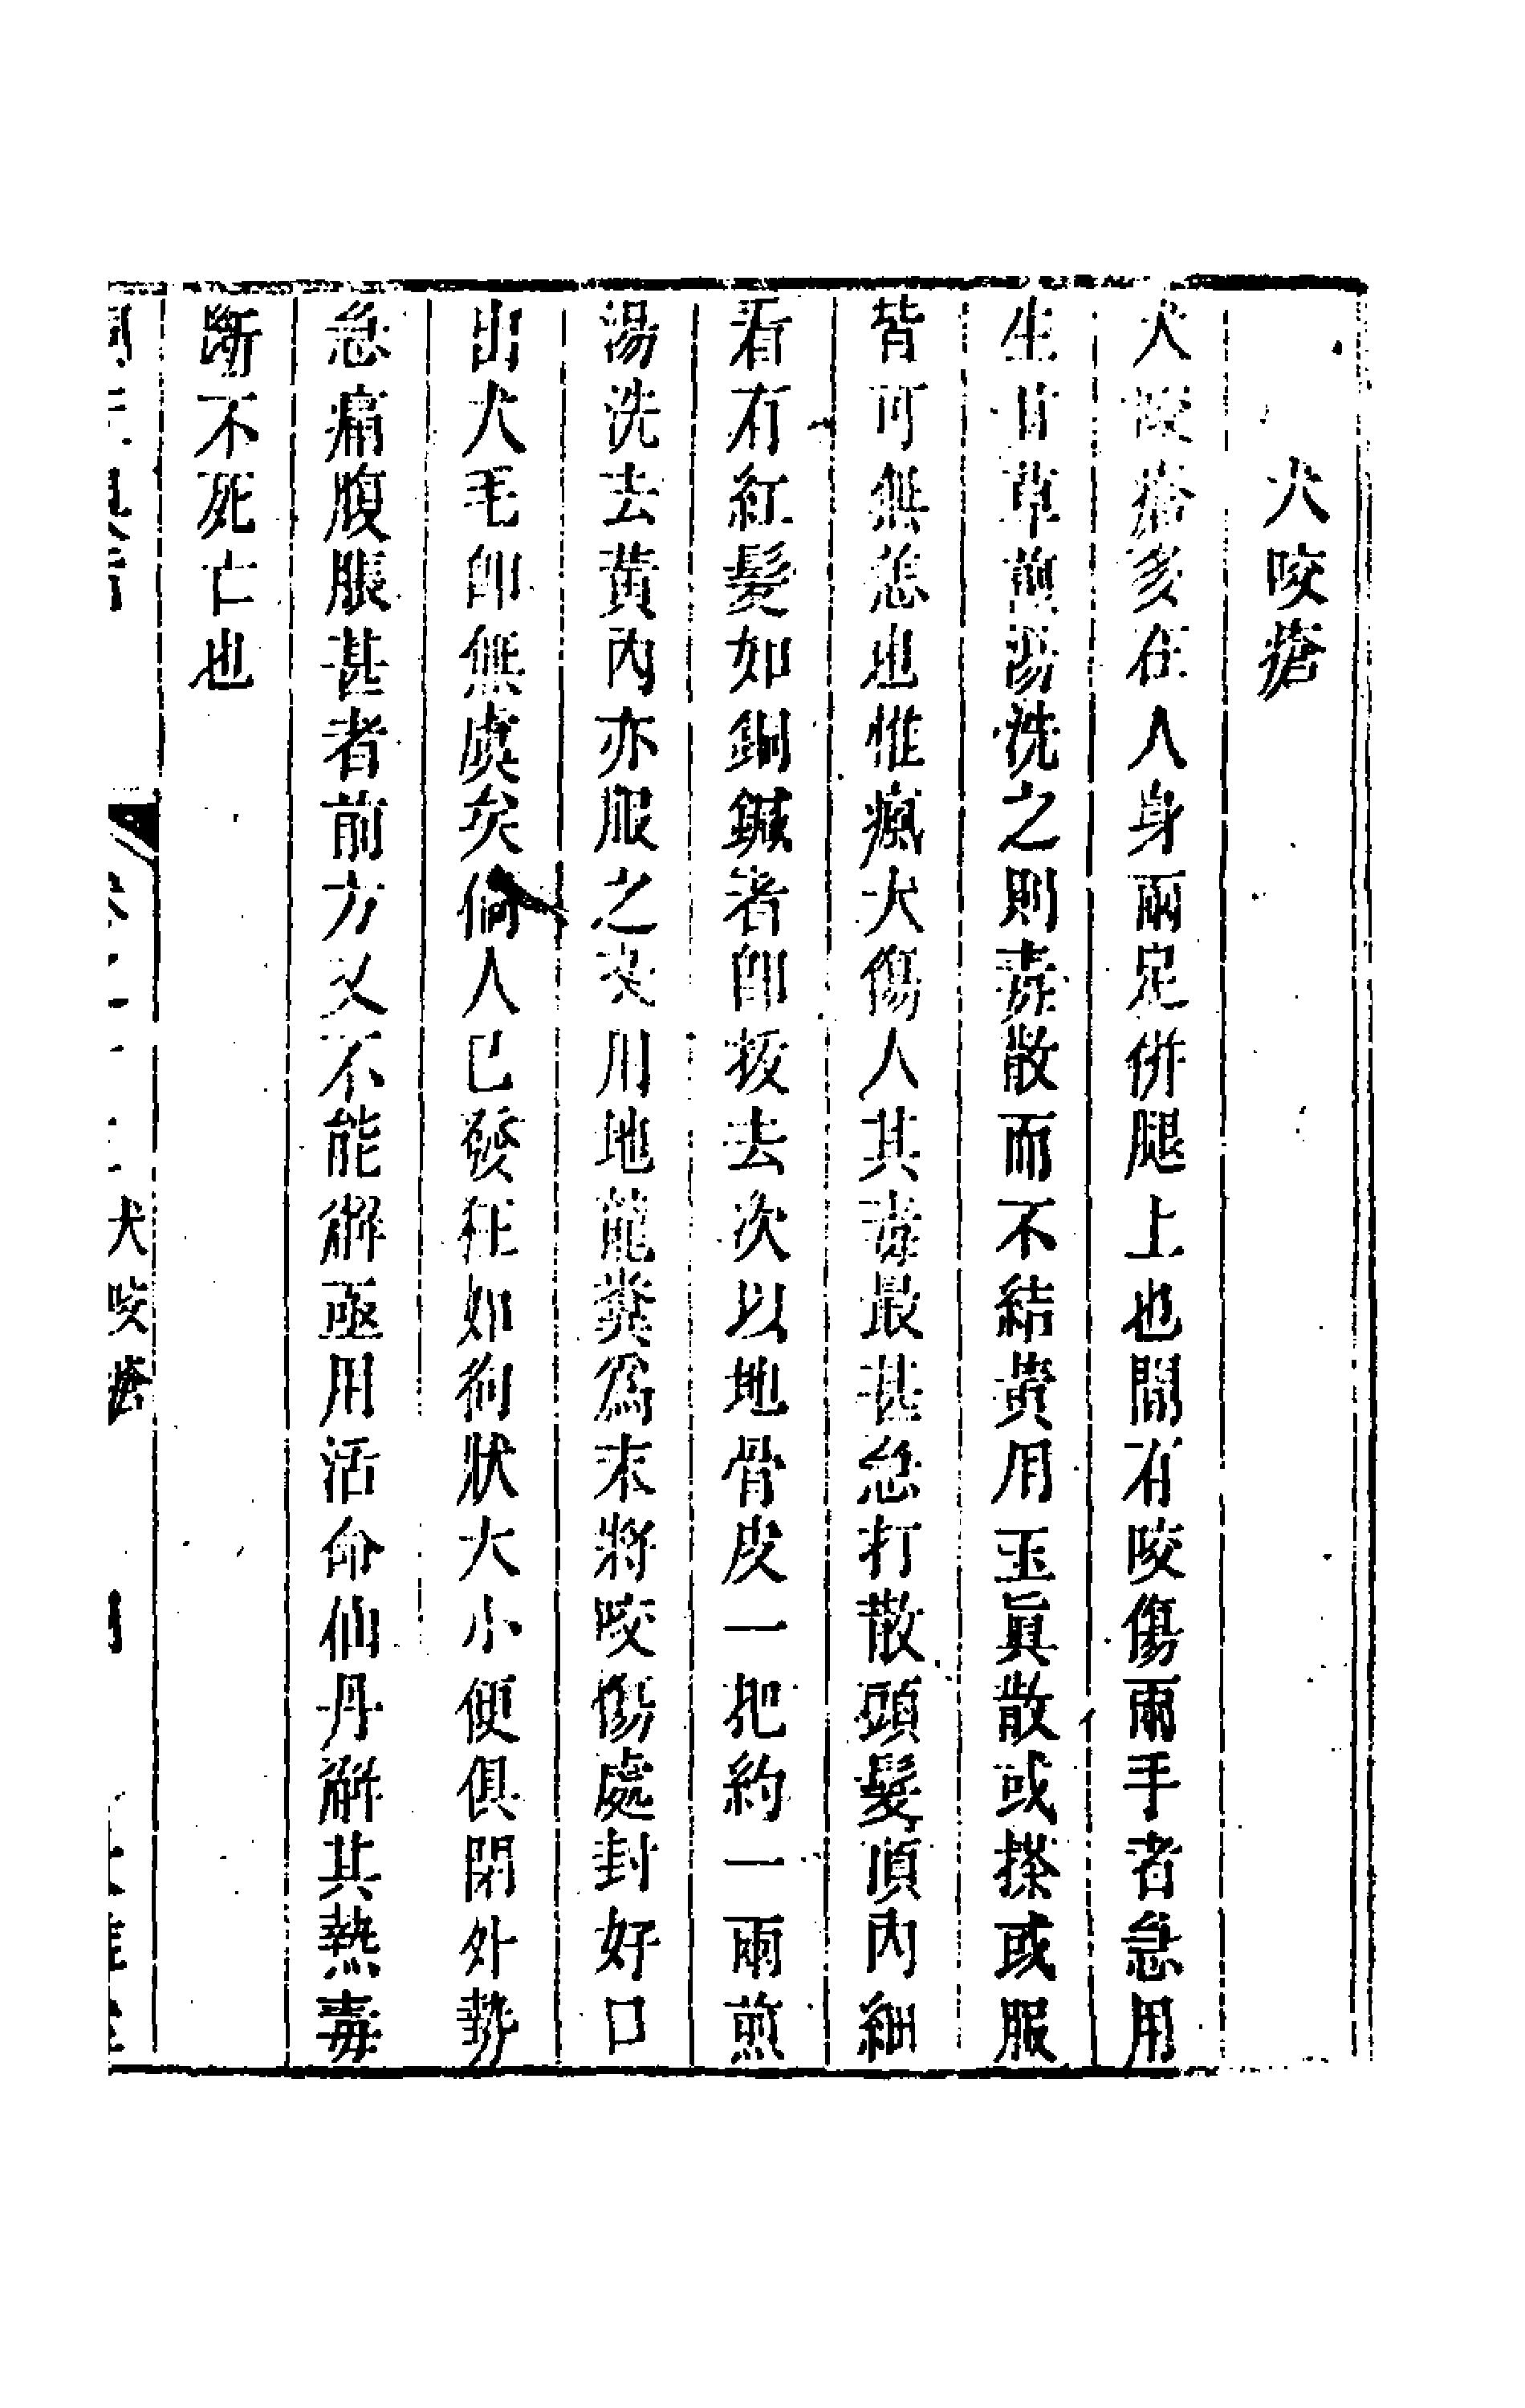 犬咬瘡
犬咬瘡多在人身兩足併腿上也間有咬傷兩手者急用
生甘草煎湯洗之則毒散而不結黃用玉眞散或搽或服
皆可無恙也惟瘋犬傷人其毒最甚急打散頭髮頂內細
看有紅髮如鋼鍼者卽拔去次以地骨皮一把約一兩煎
湯洗去黃內亦服之次用地龍糞爲末將咬傷處封好口
出犬毛卽無虞矣倘人已發狂如狗狀大小便俱閉外勢
急痛腹脹甚者前方又不能解亟用活命仙丹解其熱毒
斷不死亡也
犬咬瘡